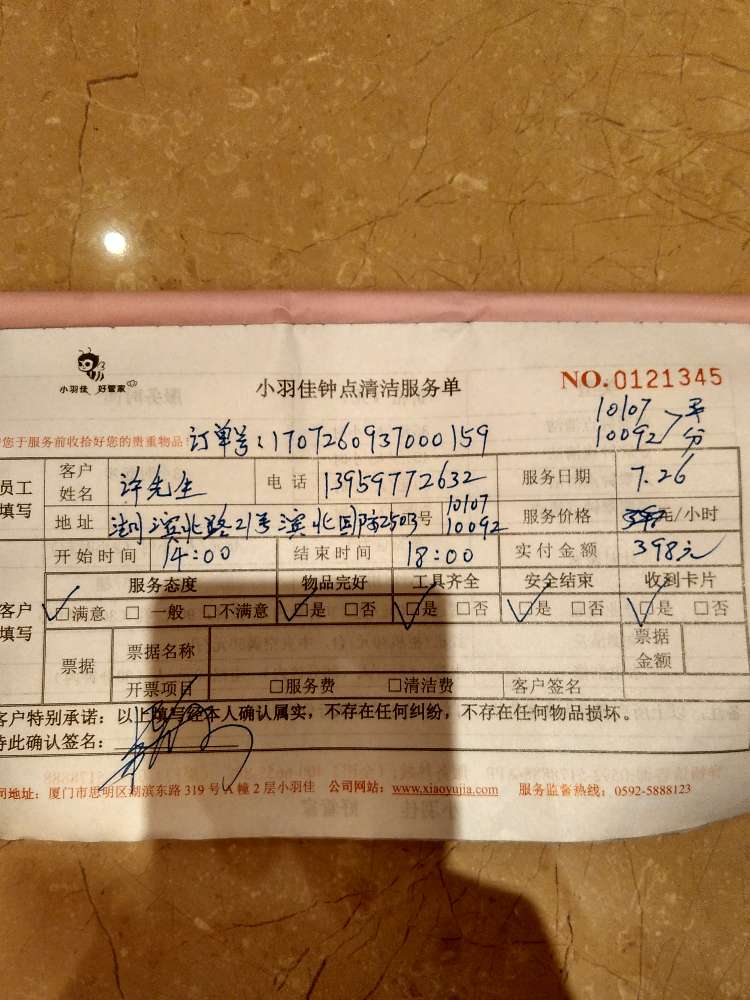 小羽佳 好管家
小羽佳钟点清洁服务单
NO.0121345
10107
10092 平分
您于服务前收拾好您的贵重物品!
订单号:1707260937000159
员工填写 客户姓名 许先生 电话 13959772632 服务日期 7.26
地址 滨北路21号滨北国际2503号 10107 10092 服务价格 元/小时
开始时间 14:00 结束时间 18:00 实付金额 398元
客户填写 服务态度 物品完好 工具齐全 安全结束 收到卡片
☑满意 □一般 □不满意 ☑是 □否 ☑是 □否 ☑是 □否 ☑是 □否
票据 票据名称 票据金额
开票项目 □服务费 □清洁费 客户签名
客户特别承诺:以上填写经本人确认属实,不存在任何纠纷,不存在任何物品损坏。
特此确认签名:
司地址:厦门市思明区湖滨东路319号A幢2层小羽佳 公司网站:www.xiaoyujia.com 服务监督热线:0592-5888123